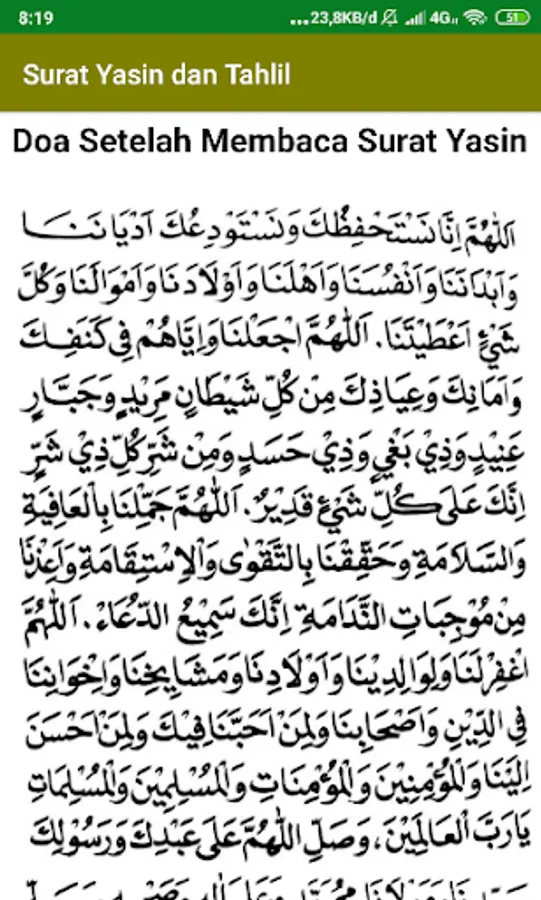 8:19
...23,8KB/d 4G 51
Surat Yasin dan Tahlil
Doa Setelah Membaca Surat Yasin
اَللّٰهُمَّ اِنَّا نَسْتَحْفِظُكَ وَنَسْتَوْدِعُكَ اَدْيَانَنَا
وَاَبْدَانَنَا وَاَنْفُسَنَا وَاَهْلَنَا وَاَوْلَادَنَا وَاَمْوَالَنَا وَكُلَّ
شَيْءٍ اَعْطَيْتَنَا. اَللّٰهُمَّ اجْعَلْنَا وَاِيَّاهُمْ فِي كَنَفِكَ
وَاَمَانِكَ وَعِيَاذِكَ مِنْ كُلِّ شَيْطَانٍ مَرِيْدٍ وَجَبَّارٍ
عَنِيْدٍ وَذِيْ بَغْيٍ وَذِيْ حَسَدٍ وَمِنْ شَرِّ كُلِّ ذِيْ شَرٍّ
اِنَّكَ عَلَى كُلِّ شَيْءٍ قَدِيْرٌ. اَللّٰهُمَّ جَمِّلْنَا بِالْعَافِيَةِ
وَالسَّلَامَةِ وَحَقِّقْنَا بِالتَّقْوٰى وَالْاِسْتِقَامَةِ وَاَعِذْنَا
مِنْ مُوْجِبَاتِ النَّدَامَةِ اِنَّكَ سَمِيْعُ الدُّعَاءْ. اَللّٰهُمَّ
اغْفِرْ لَنَا وَلِوَالِدِيْنَا وَاَوْلَادِنَا وَمَشَايِخِنَا وَاِخْوَانِنَا
فِي الدِّيْنِ وَاَصْحَابِنَا وَلِمَنْ اَحَبَّنَا فِيْكَ وَلِمَنْ اَحْسَنَ
اِلَيْنَا وَالْمُؤْمِنِيْنَ وَالْمُؤْمِنَاتِ وَالْمُسْلِمِيْنَ وَالْمُسْلِمَاتِ
يَارَبَّ الْعَالَمِيْنَ، وَصَلِّ اللّٰهُمَّ عَلَى عَبْدِكَ وَرَسُوْلِكَ